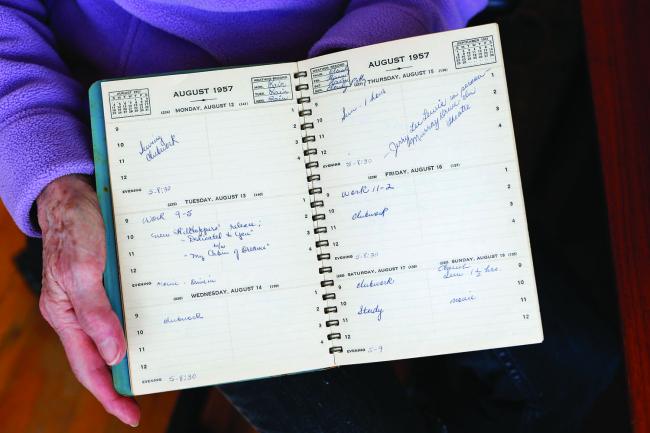 AUGUST 1957
WEATHER RECORD
MON. Fair
TUES. Fair
WED. Fair
(224) MONDAY, AUGUST 12 (141)
9
10
11
12
1
2
3
4
Clubwork
EVENING 5-8:30
(225) TUESDAY, AUGUST 13 (140)
9 Work 9-5
10 New release;
11 - "Dedicated to You"
b/w
12 - "My Cabin of Dreams"
1
2
3
4
EVENING Movie - Drive-in
(226) WEDNESDAY, AUGUST 14 (139)
9
10
11
12
1
2
3
4
Clubwork
EVENING 5-8:30
AUGUST 1957
WEATHER RECORD
(227) THURSDAY, AUGUST 15 (138)
9
10
11
12
1
2
3
4
Sun - 1 hour
Jerry Lee Lewis in person
Murray Drive-In
Theatre
EVENING 5-8:30
(228) FRIDAY, AUGUST 16 (137)
9
10
11
12
1
2
3
4
Work 11-2
Clubwork
EVENING 5-8:30
(229) SATURDAY, AUGUST 17 (136)
SUNDAY, AUGUST 18
9 Clubwork
10
11 Study
12
1
2
3
4
Church
Sun 1 1/2 hrs.
movie
9
10
11
12
EVENING 5-9